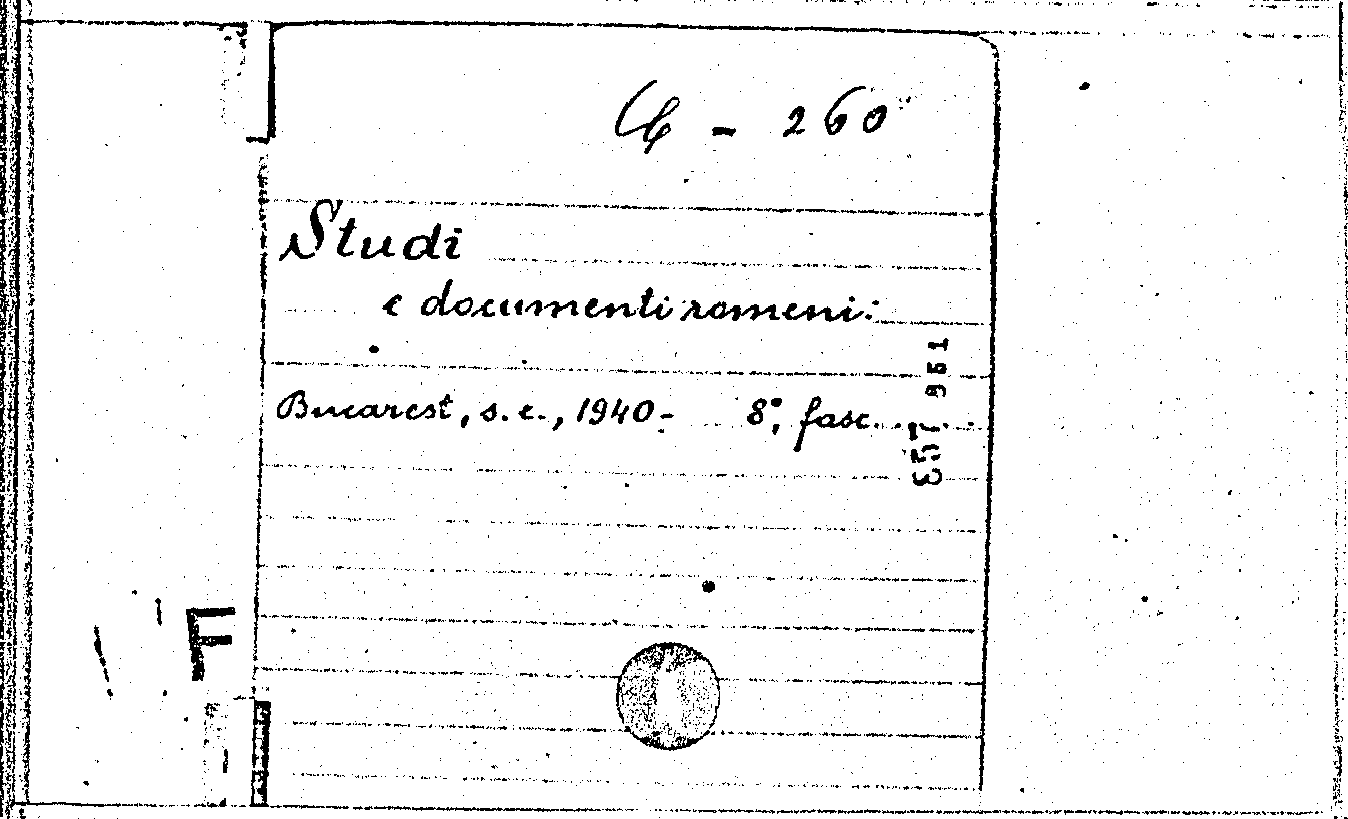 - 260
Studi
e documenti romeni:
Bucarest, s. e., 1940- 8°, fasc.
657 951
F